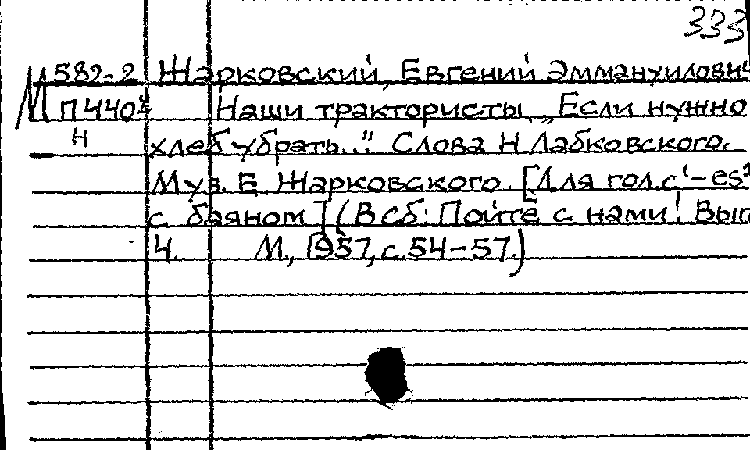 333
М 582-2 Жарковский, Евгений Эммануилович
П440 Наши трактористы. „Если нужно
Н хлеб убрать..." Слова Н Лабковского.
Муз. Е. Жарковского. [Для гол. с¹-es²
с баяном] (В сб: Пойте с нами! Вып
4. М., 1957, с. 54-57.)